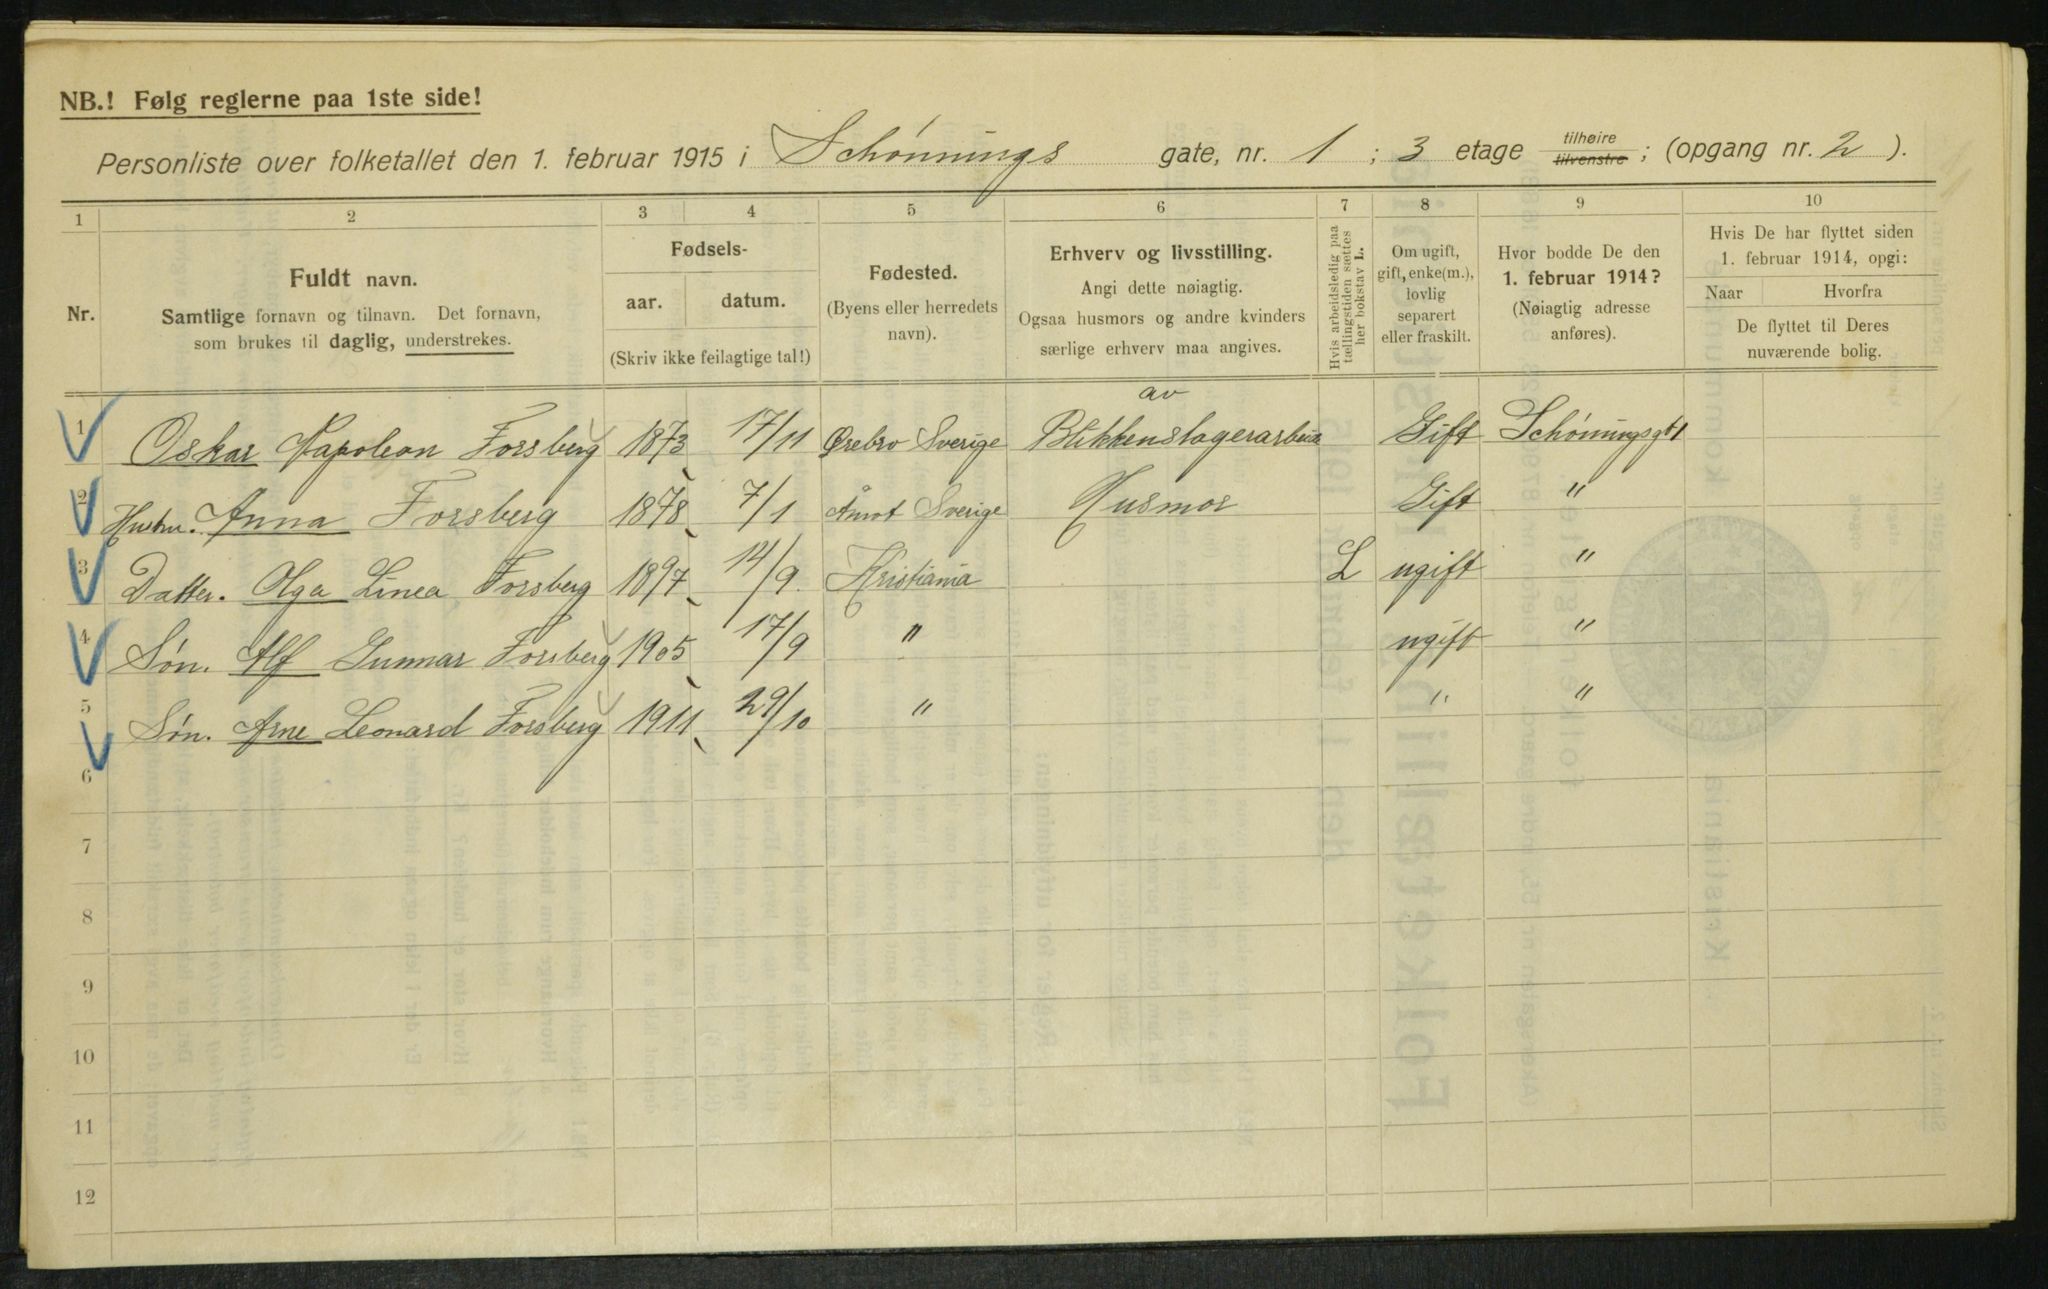 NB.! Følg reglerne paa 1ste side!
Personliste over folketallet den 1. februar 1915 i Schønnings gate, nr. 1 ; 3 etage tilhøire tilvenstre ; (opgang nr. 2 ).
1 2 3 4 5 6 7 8 9 10
Nr.
Fuldt navn.
Samtlige fornavn og tilnavn. Det fornavn,
som brukes til daglig, understrekes.
Fødsels-
aar. datum.
(Skriv ikke feilagtige tal!)
Fødested.
(Byens eller herredets
navn).
Erhverv og livsstilling.
Angi dette nøiagtig.
Ogsaa husmors og andre kvinders
særlige erhverv maa angives.
Hvis arbeidsledig paa
tællingstiden sættes
her bokstav L.
Om ugift,
gift, enke(m.),
lovlig
separert
eller fraskilt.
Hvor bodde De den
1. februar 1914?
(Nøiagtig adresse
anføres).
Hvis De har flyttet siden
1. februar 1914, opgi:
Naar Hvorfra
De flyttet til Deres
nuværende bolig.
av
1 Oskar Napoleon Forsberg 1873 17/11 Ørebro Sverige Blikkenslagerarbeid Gift Schøningsgt 1
2 Hustru. Anna Forsberg 1878 7/1 Åmot Sverige Husmor Gift "
3 Datter. Olga Linea Forsberg 1897 14/9 Kristiania L ugift "
4 Søn. Alf Gunnar Forsberg 1905 17/9 " ugift "
5 Søn. Arne Leonard Forsberg 1911 29/10 " " "
6
7
8
9
10
11
12